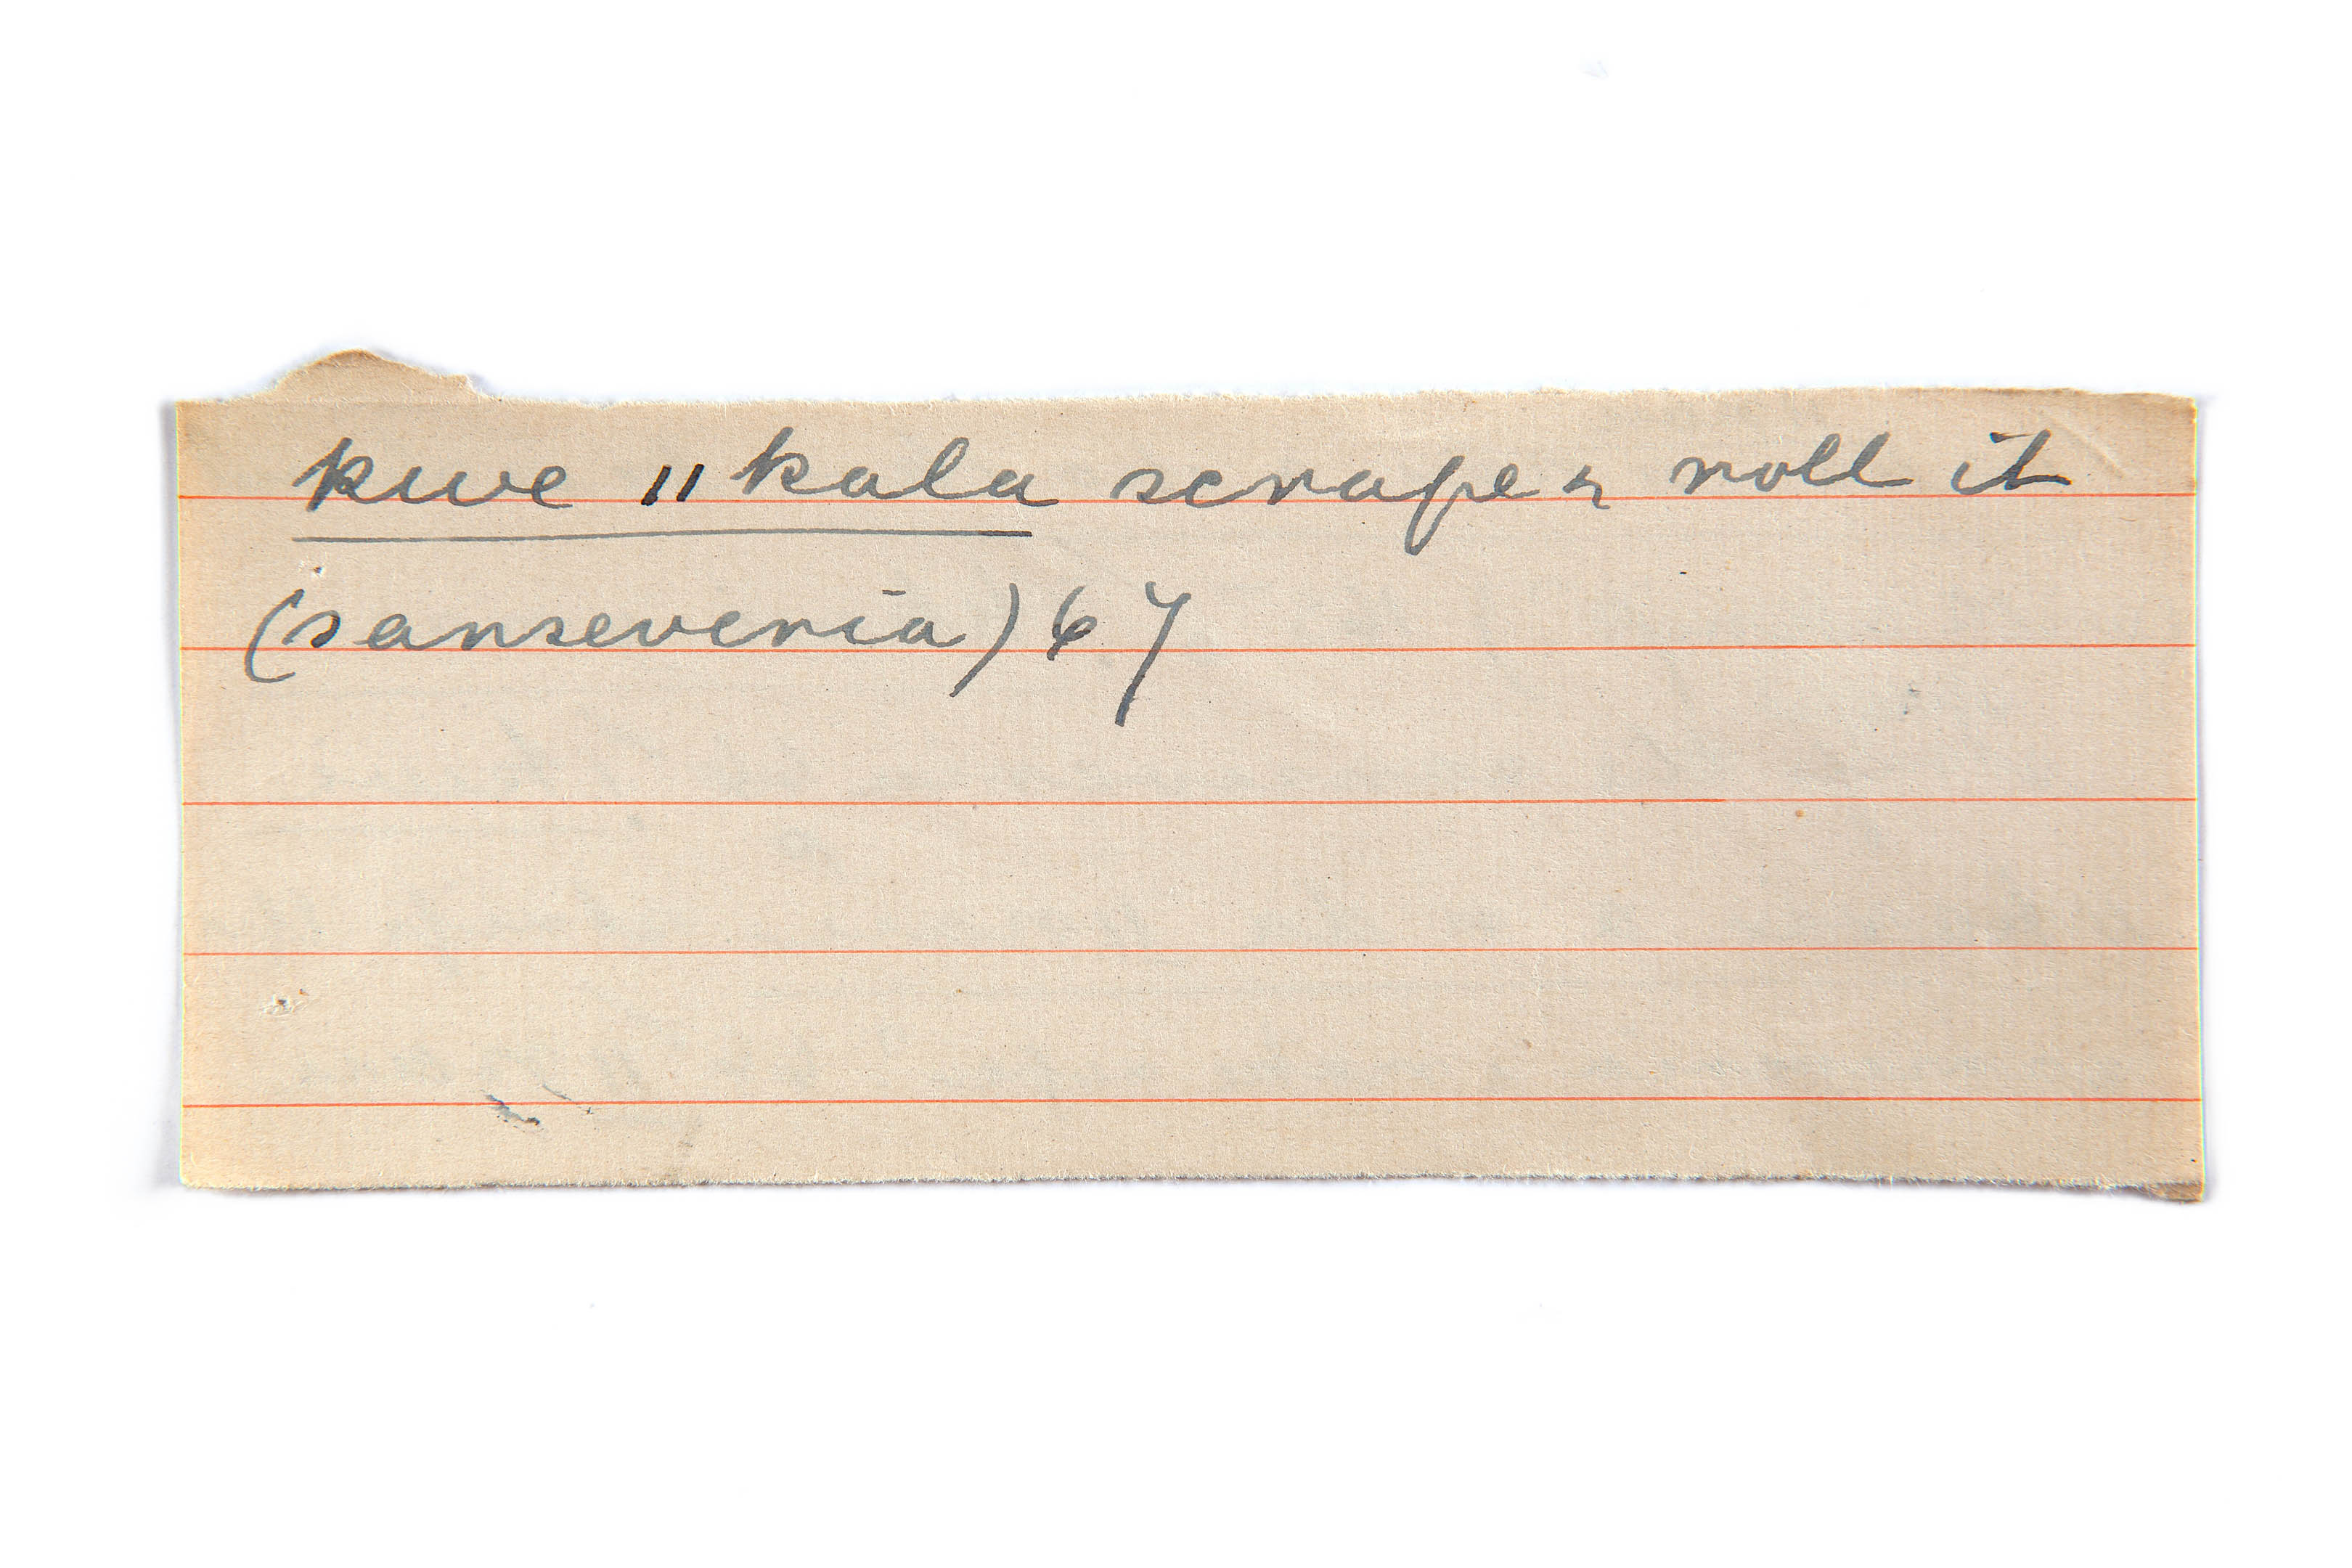 kwe ‖ kala scrape & roll it
(sanseveria) 67